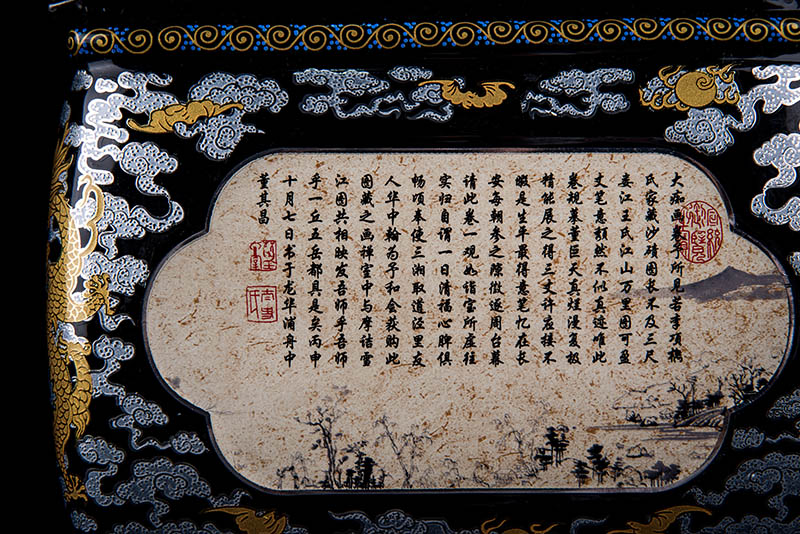 大痴画卷予所见若李項檇
氏家藏沙碛图长不及三尺
娄江王氏江山万里图可盈
丈笔意颓然不似真迹唯此
卷规摹董巨天真烂漫复极
精能展之得三丈许应接不
暇是生平最得意笔忆在长
安每朝参之隙徵逐周台幕
请此卷一观如诣宝所虚往
实归自谓一日清福心脾俱
畅顷奉使三湘取道泾里友
人华中翰为予和会获购此
图藏之画禅室中与摩诘雪
江图共相映发吾师乎吾师
乎一丘五岳都具是矣丙申
十月七日书于龙华浦舟中
董其昌